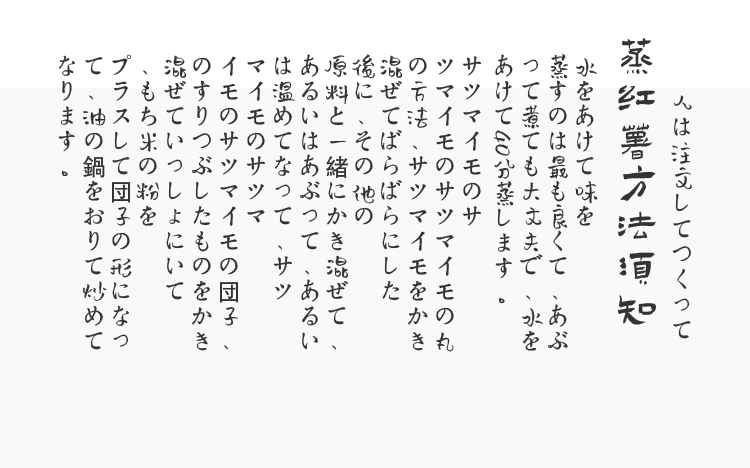 人は注文してつくって
蒸红薯方法須知
水をあけて味を
蒸すのは最も良くて、あぶ
って煮ても大丈夫で、水を
あけて60分蒸します。
サツマイモのサ
ツマイモのサツマイモの丸
の方法、サツマイモをかき
混ぜてばらばらにした
後に、その他の
原料と一緒にかき混ぜて、
あるいはあぶって、あるい
は温めてなって、サツ
マイモのサツマ
イモのサツマイモの団子、
のすりつぶしたものをかき
混ぜていっしょにいて
、もち米の粉を
プラスして団子の形になっ
て、油の鍋をおりて炒めて
なります。